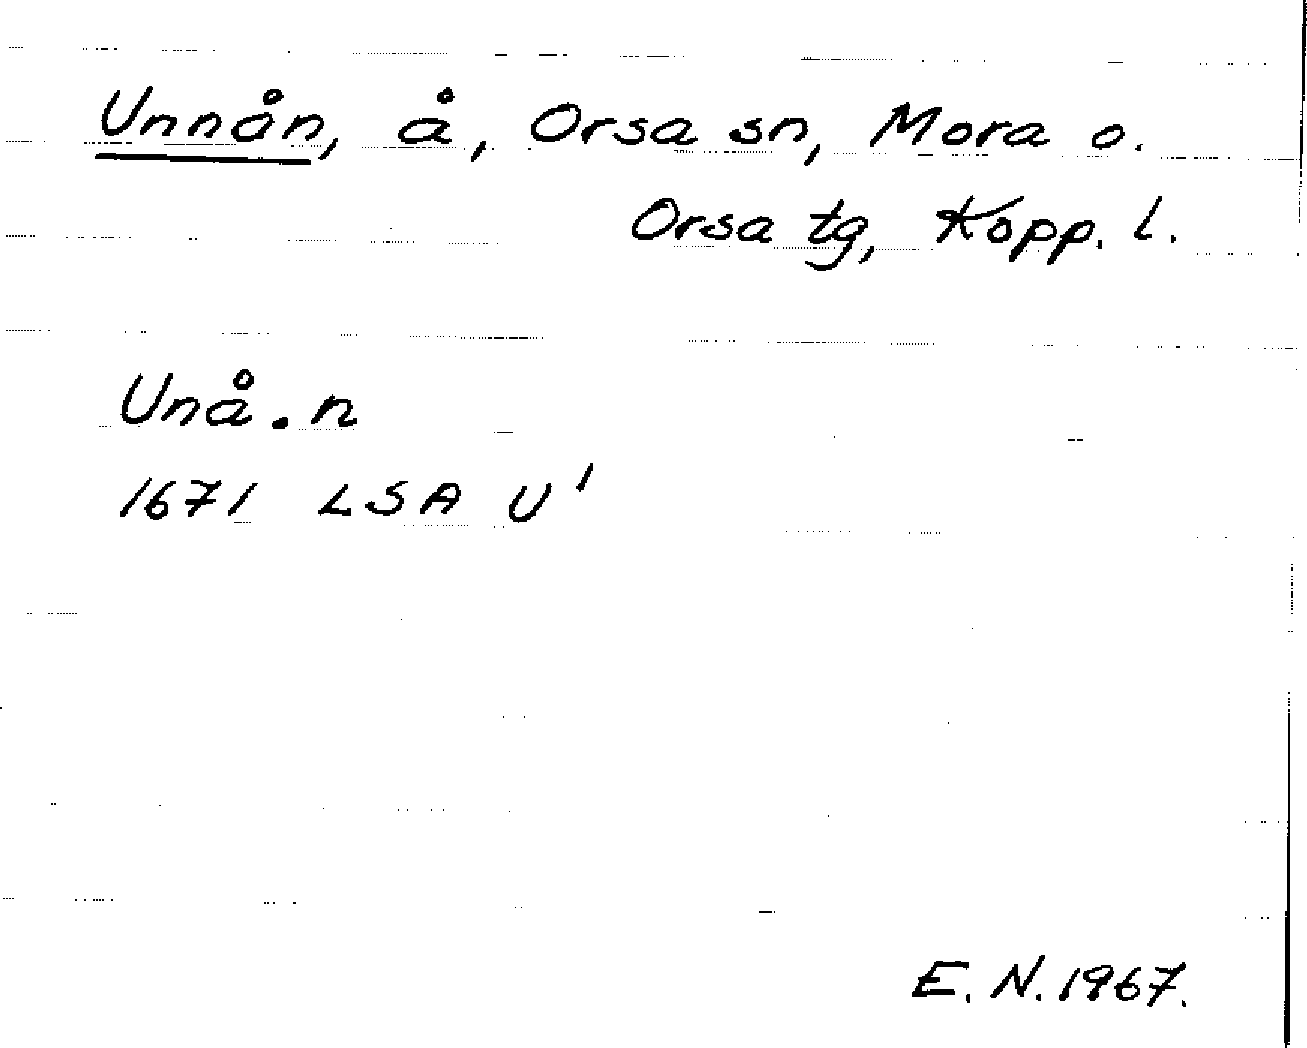 Unnån, å, Orsa sn, Mora o.
Orsa tg, Kopp. l.
Unå.n
1671 LSA U'
E. N. 1967.